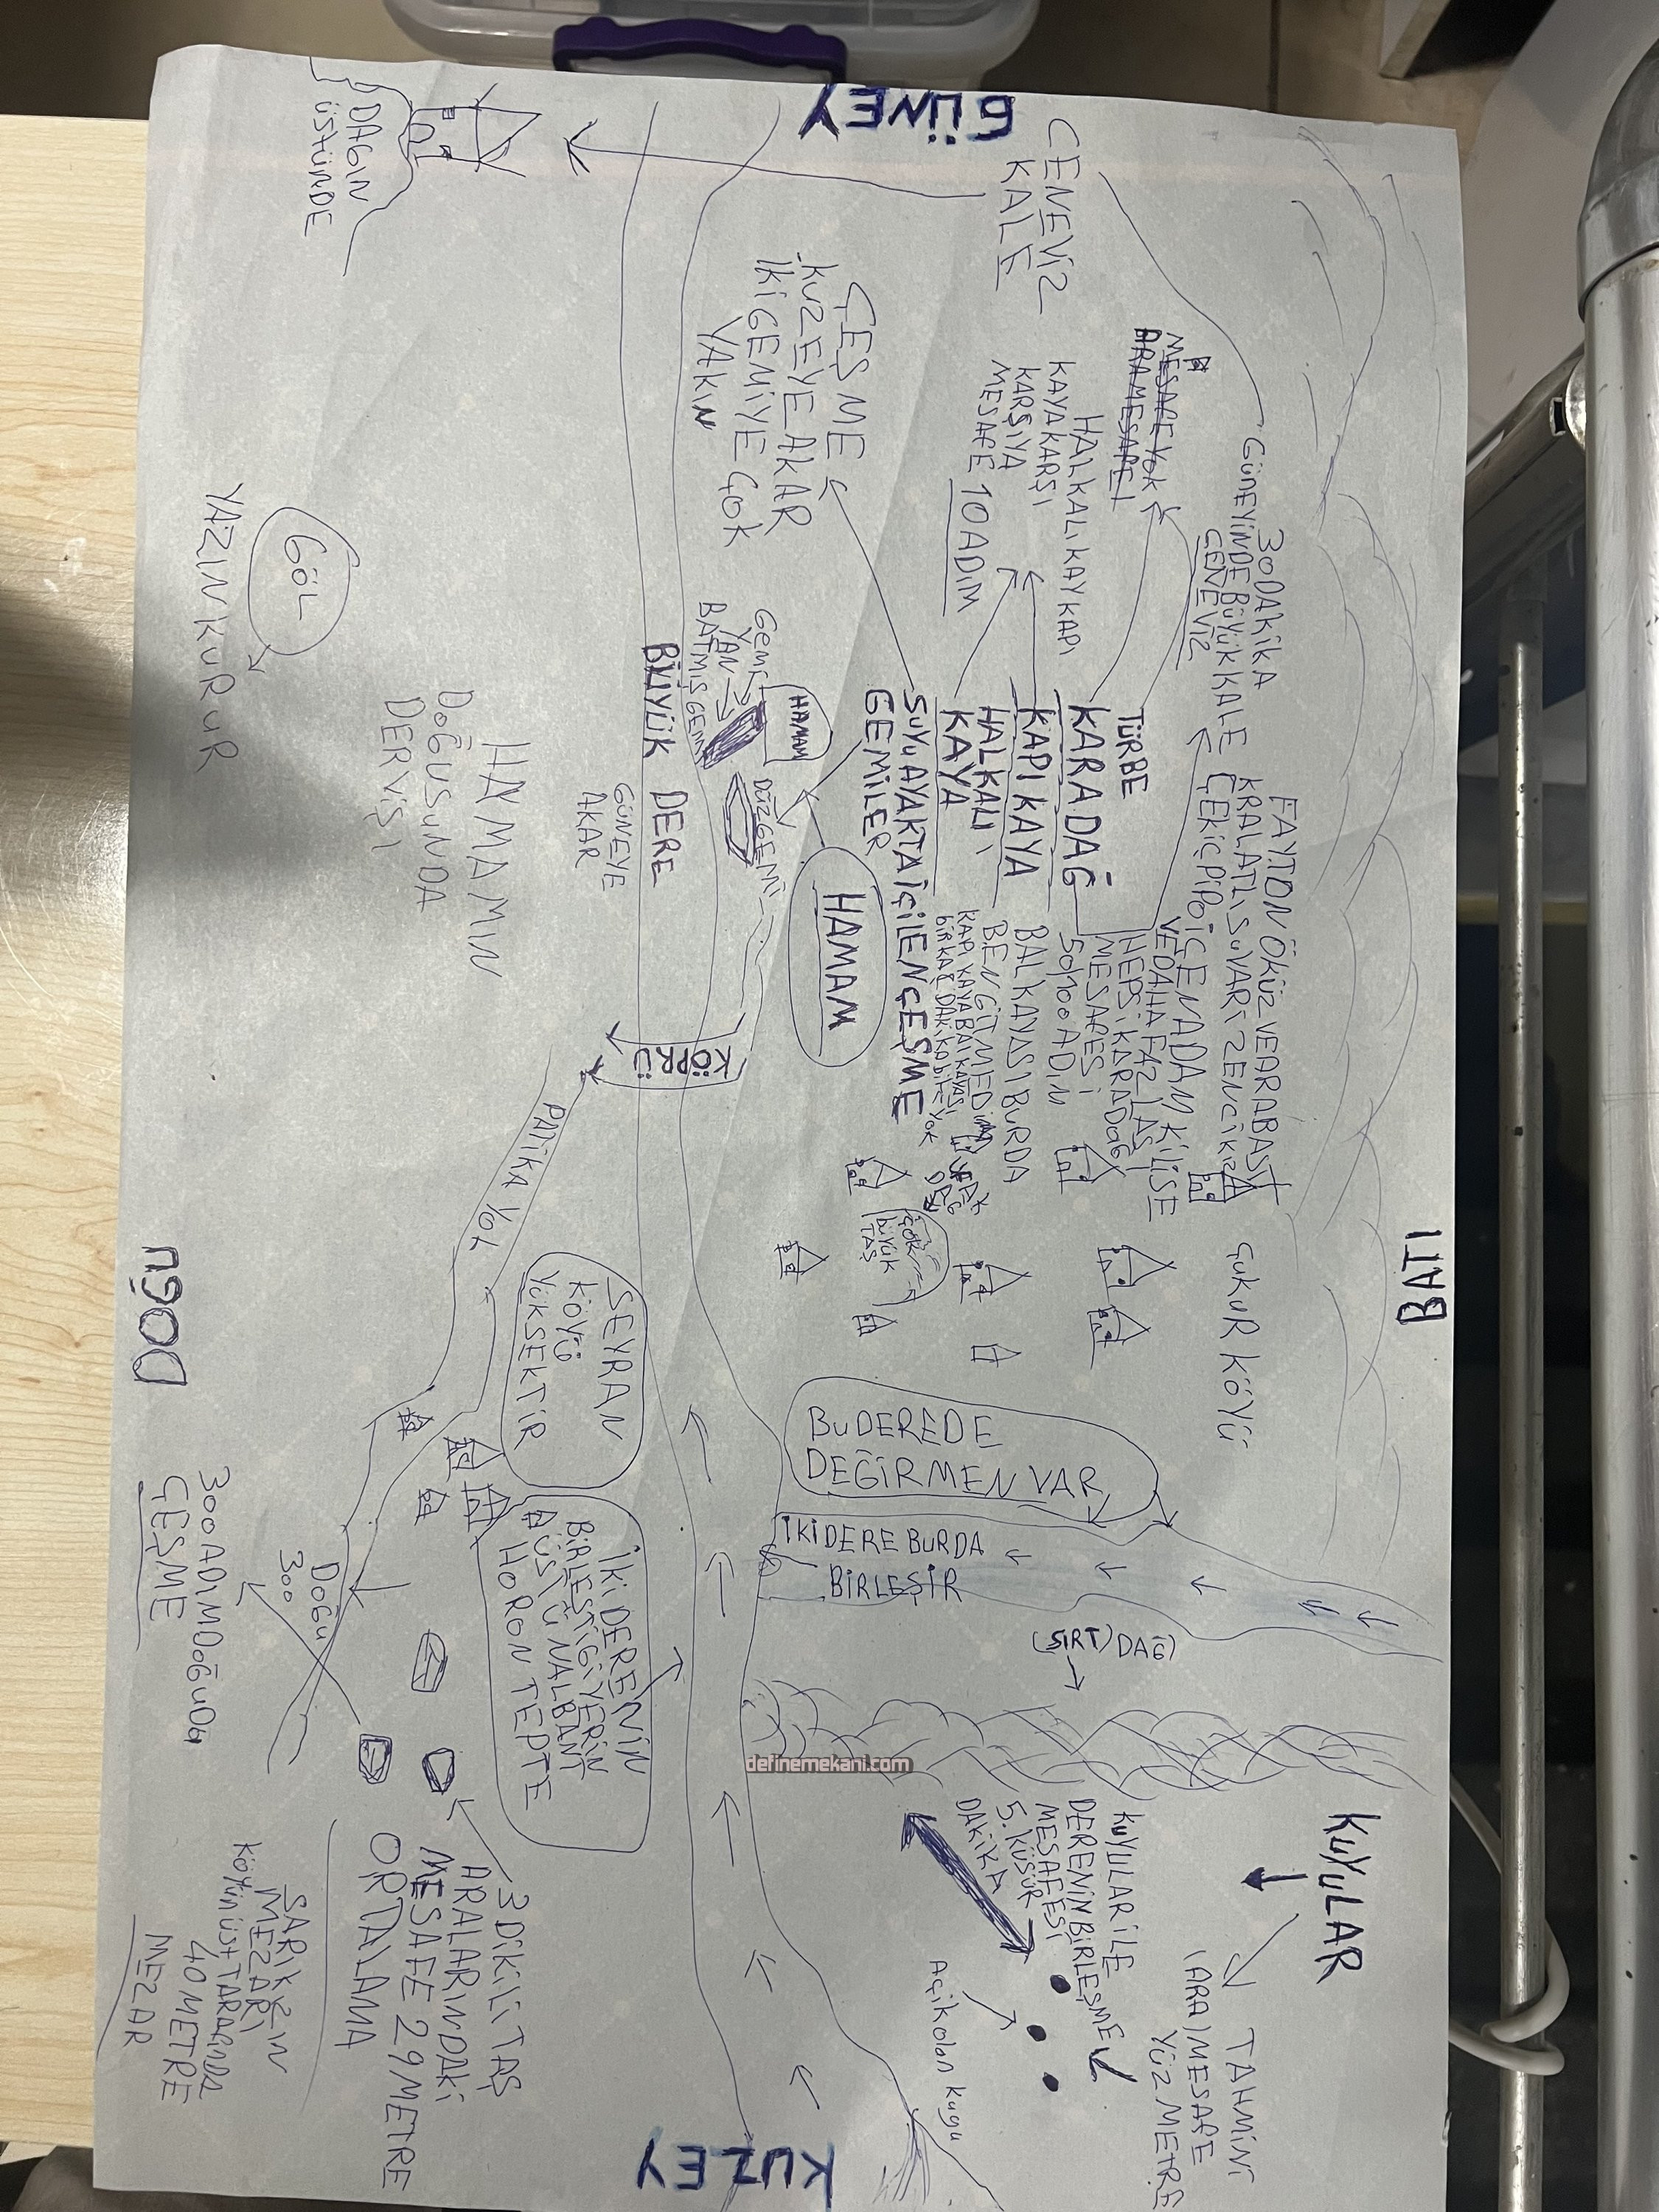 GÜNEY
CENEVİZ
KALE
DAĞIN
ÜSTÜNDE
ÇEŞME
KUZEYE AKAR
İKİ GEMİYE ÇOK
YAKIN
MESAFE YOK
ARA MESAFE
HALKALI KAY KAPI
KAYA KARŞI
KARŞIYA
MESAFE 10 ADIM
30 DAKİKA
GÜNEYİNDE BÜYÜK KALE
CENEVİZ
FAYTON ÖKÜZ VE ARABASI
KRAL ATLI SUVARİ ZENCİ KIZ
ÇEKİÇ PİPO İÇEN ADAM KİLİSE
VE DAHA FAZLASI
HEPSİ KARADAĞ
MESAFESİ
50/100 ADIM
TÜRBE
KARADAĞ
KAPI KAYA
HALKALI
KAYA
SUYU AYAKTA İÇİLEN ÇEŞME
GEMİLER
BAL KAYASI BURDA
BEN GİTMEDİM
KAPI KAYA BAL KAYASI
BİR KAÇ DAKİKA BİLE YOK
UFAK
DAĞ
ÇOK
BÜYÜK
TAŞ
ÇUKUR KÖYÜ
BATI
HAMAM
GEMİ
YAN
BATMIŞ GEMİ
DÜZ GEMİ
HAMAM
BÜYÜK DERE
GÜNEYE
AKAR
KÖPRÜ
GÖL
YAZIN KURUR
HAMAMIN
DOĞUSUNDA
DERVİŞİ
PATİKA YOL
DOĞU
SEYRAN
KÖYÜ
YÜKSEKTİR
BU DEREDE
DEĞİRMEN VAR
İKİ DERE BURDA
BİRLEŞİR
(SIRT) DAĞI
İKİ DERENİN
BİRLEŞTİĞİ YERİN
ÜSTÜ NALBANT
HORON TEPTE
DOĞU
300
300 ADIM DOĞUDA
ÇEŞME
3 DİKİLİ TAŞ
ARALARINDAKİ
MESAFE 29 METRE
ORTALAMA
SARIKIZIN
MEZARI
KÖYÜN ÜST TARAFINDA
40 METRE
MEZAR
KUYULAR
TAHMİNİ
(ARA) MESAFE
YÜZ METRE
KUYULAR İLE
DERENİN BİRLEŞME
MESAFESİ
5. KÜSÜR
DAKİKA
Açık olan kuyu
KUZEY
definemekani.com